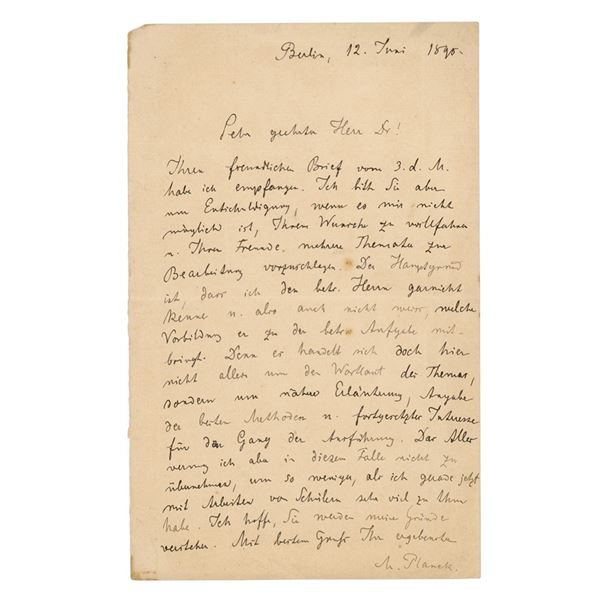 Berlin, 12. Juni 1890.
Sehr geehrter Herr Dr!
Ihren freundlichen Brief vom 3. d. M.
habe ich empfangen. Ich bitte Sie aber
um Entschuldigung, wenn es mir nicht
möglich ist, Ihrem Wunsche zu willfahren
u. Ihrem Freunde mehrere Themata zur
Bearbeitung vorzuschlagen. Der Hauptgrund
ist, dass ich den betr. Herrn garnicht
kenne u. also auch nicht weiss, welche
Vorbildung er zu der betr. Aufgabe mit-
bringt. Denn es handelt sich doch hier
nicht allein um den Wortlaut des Themas,
sondern um nähere Erläuterung, Angabe
der besten Methoden u. fortgesetztes Interesse
für den Gang der Ausführung. Das Alles
vermag ich aber in diesem Falle nicht zu
übernehmen, um so weniger, als ich gerade jetzt
mit Arbeiten von Schülern sehr viel zu thun
habe. Ich hoffe, Sie werden meine Gründe
verstehen. Mit bestem Gruss Ihr ergebenster
M. Planck.